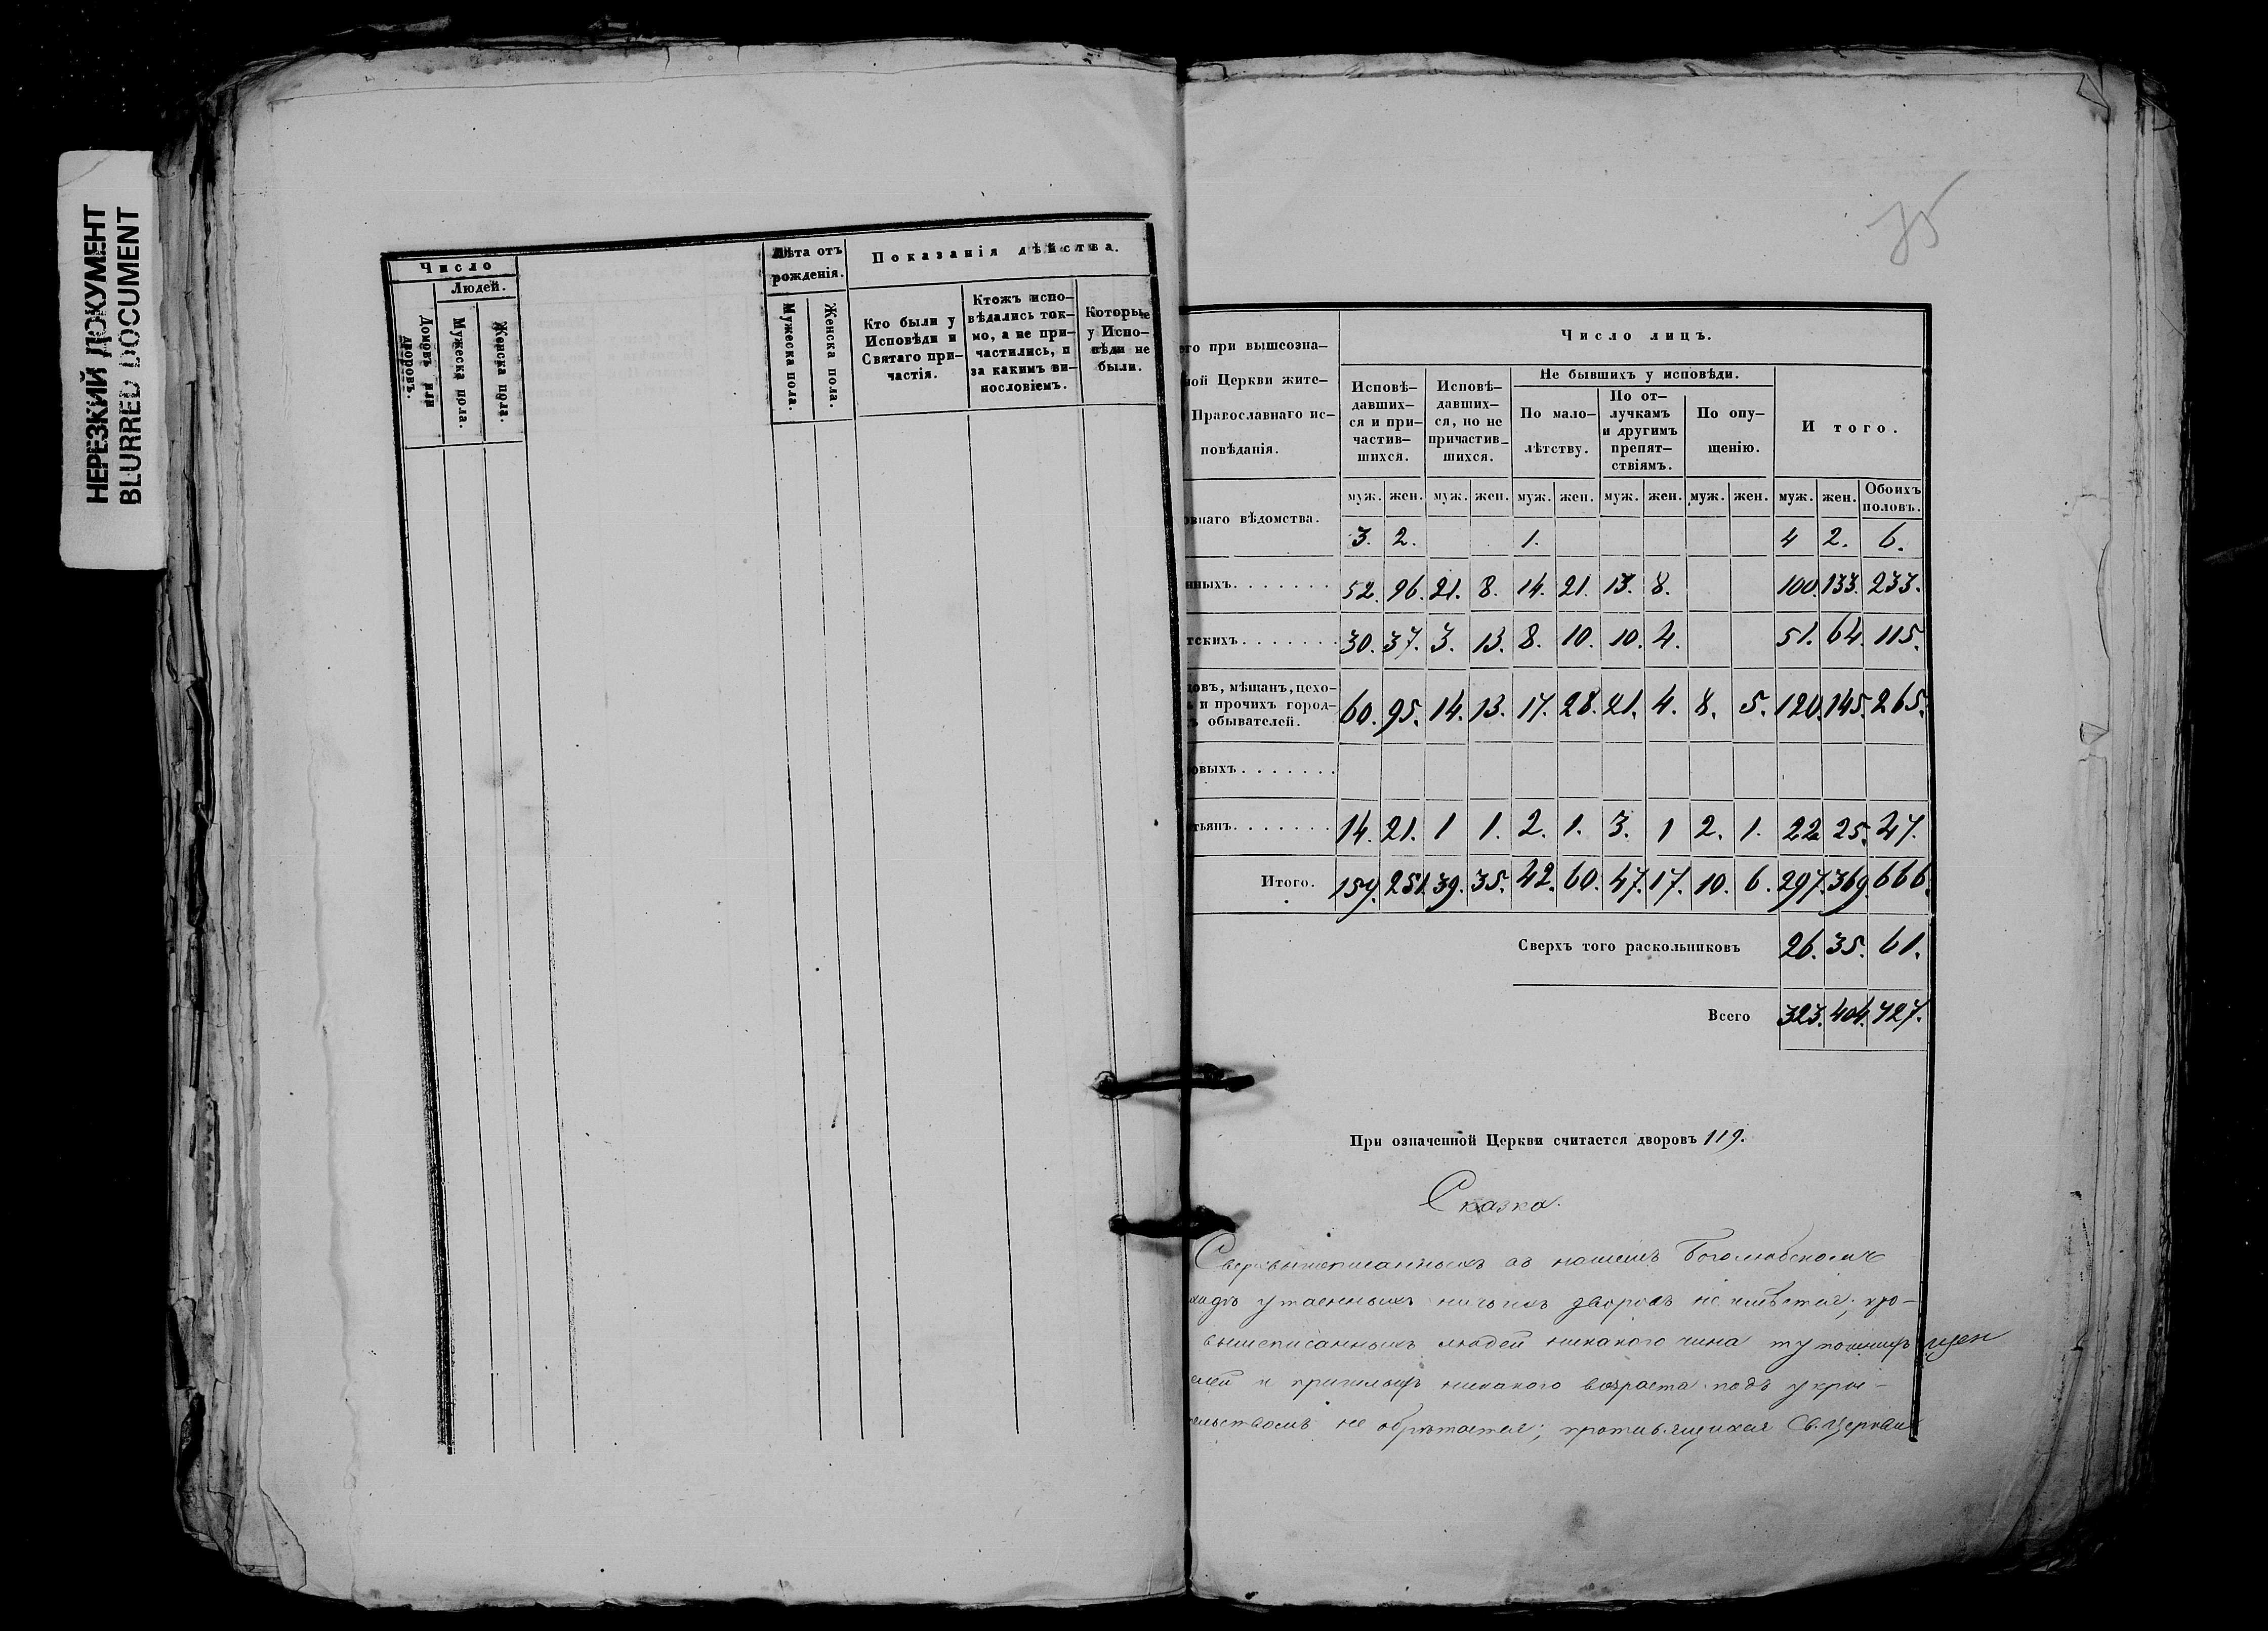 НЕРЕЗКИЙ ДОКУМЕНТ
BLURRED DOCUMENT
Число
Людей.
Домовъ или дворовъ.
Мужеска пола.
Женска пола.
Лѣта отъ рожденія.
Мужеска пола.
Женска пола.
Показанія дѣйства.
Кто были у Исповѣди и Святаго причастія.
Ктожъ исповѣдались токмо, а не причастились, и за какимъ винословіемъ.
Которые у Исповѣди не были.
35
его при вышеозна-
ной Церкви жите-
Православнаго ис-
повѣданія.
Число лицъ.
Исповѣ-давших-ся и при-частив-шихся.
Исповѣ-давших-ся, но не причастив-шихся.
Не бывшихъ у исповѣди.
По мало-лѣтству.
По от-лучкамъ и другимъ препят-ствіямъ.
По опу-щенію.
И того.
муж. жен. муж. жен. муж. жен. муж. жен. муж. жен. муж. жен. Обоихъ половъ.
овнаго вѣдомства. 3. 2. 1. 4 2. 6.
нныхъ. 52. 96. 21. 8. 14. 21. 13. 8. 100. 133. 233.
тскихъ. 30. 37. 3. 13. 8. 10. 10. 4. 51. 64. 115.
цовъ, мѣщанъ, цехо-
ъ и прочихъ город-
ъ обывателей. 60. 95. 14. 13. 17. 28. 21. 4. 8. 5. 120. 145. 265.
овыхъ.
тьянъ. 14. 21. 1 1. 2. 1. 3. 1 2. 1. 22 25. 47.
Итого. 159. 251. 39. 35. 42. 60. 47. 17. 10. 6. 297. 369. 666.
Сверхъ того раскольниковъ 26. 35. 61.
Всего 323. 404. 727.
При означенной Церкви считается дворовъ 119.
Сказка.
Сверхвышеписанныхъ въ нашемъ Боголюбскомъ
ходѣ утаенныхъ ничьихъ дворовъ не имѣется; кро-
вышеписанныхъ людей никакого чина
и пришлыхъ никакого возраста подъ укры-
тельствомъ не обрѣтается; противящихся Св. Церкви